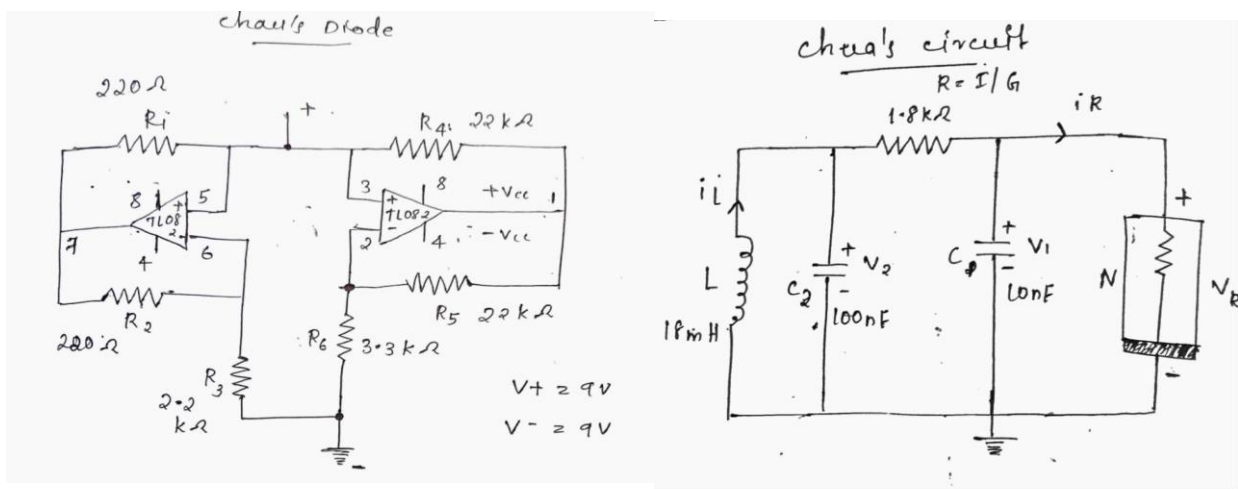 Chau's Diode
220Ω
R1
+
R4
22kΩ
8
5
+
TL082
-
7
4
6
3
8
+Vcc
1
+
TL082
-
2
4
-Vcc
R2
220Ω
R5
22kΩ
R6
3.3kΩ
R3
2.2
kΩ
V+ = 9V
V- = 9V
-
Chua's circuit
R= I/G
1.8kΩ
iR
iL
+
+
V2
-
C2
100nF
+
V1
-
C1
10nF
L
18mH
N
VR
-